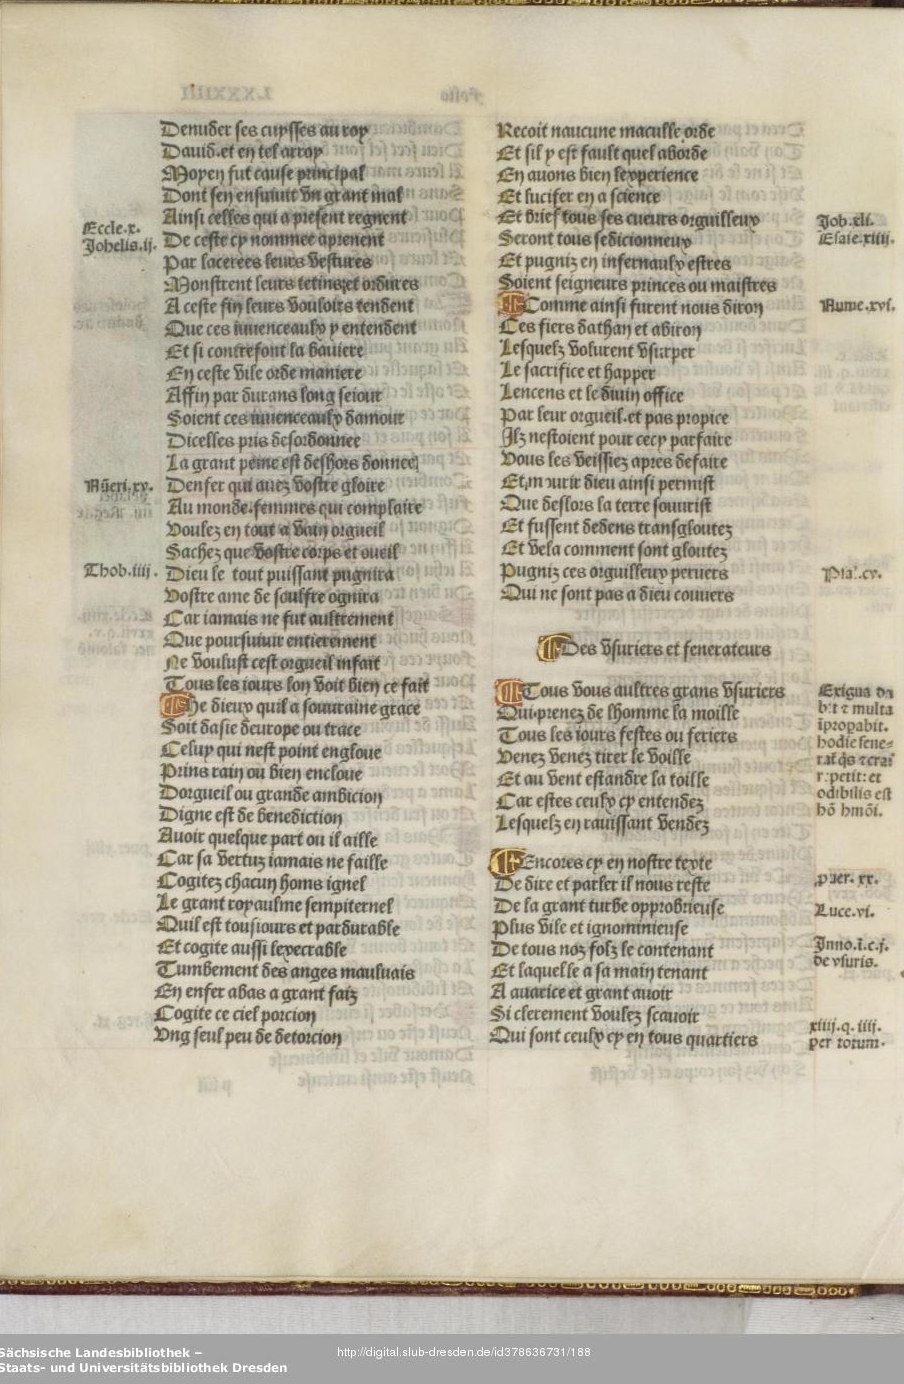 Denuder ses cuysses au roy
Dauid.et en tel arroy
Moyen fut cause principal
Dont sen ensuiuit vn grant mal
Ainsi celles qui a present regnent
De ceste cy nommee aprenent
Par lacerees leurs vestures
Monstrent leurs tetins et ordures
A ceste fin leurs vouloirs tendent
Que ces iuuenceaulx y entendent
Et si contrefont la bauiere
En ceste vile orde maniere
Affin par durans long seiour
Soient ces iuuenceaulx damour
Dicelles pris desordonnee
La grant peine est deshors donnee
Denfer qui auez vostre gloire
Au monde.femmes qui complaire
Voulez en tout a vain orgueil
Sachez que vostre corps et oueil
Dieu le tout puissant pugnira
Vostre ame de soulfre ognira
Car iamais ne fut aultrement
Que poursuiuir entierement
Ne voulust cest orgueil infait
Tous les iours lon voit bien ce fait
He dieux quil a souuraine grace
Soit dasie deurope ou trace
Celuy qui nest point engloue
Prins rain ou bien encloue
Dorgueil ou grande ambicion
Digne est de benediction
Auoir quelque part ou il aille
Car sa vertuz iamais ne faille
Cogitez chacun homs ignel
Le grant royaulme sempiternel
Quil est tousiours et pardurable
Et cogite aussi lexecrable
Tumbement des anges mauluais
En enfer abas a grant faiz
Cogite ce ciel porcion
Vng seul peu de detorcion
Eccle.x.
Johelis.ij.
Nūeri.xv.
Thob.iiij.
Recoit naucune maculle orde
Et sil y est fault quel aborde
En auons bien lexperience
Et lucifer en a science
Et brief tous ses cueurs orguilleux
Seront tous sedicionneux
Et pugniz en infernaulx estres
Soient seigneurs princes ou maistres
Comme ainsi furent nous diron
Ces fiers dathan et abiron
Lesquelz volurent vsurper
Le sacrifice et happer
Lencens et le diuin office
Par leur orgueil.et pas propice
Ilz nestoient pour cecy parfaire
Vous les veissiez apres defaire
Et mourir dieu ainsi permist
Que deslors la terre souurist
Et fussent dedens transgloutez
Et vela comment sont gloutez
Pugniz ces orguilleux peruers
Qui ne sont pas a dieu conuers
Des vsuriers et fenerateurs
Tous vous aultres grans vsuriers
Qui prenez de lhomme la moille
Tous les iours festes ou feriers
Venez venez tirer le voille
Et au vent estandre la toille
Car estes ceulx cy entendez
Lesquelz en rauissant vendez
Encores cy en nostre texte
De dire et parler il nous reste
De la grant turbe opprobrieuse
Plus vile et ignominieuse
De tous noz folz le contenant
Et laquelle a sa main tenant
A auarice et grant auoir
Si clerement voulez scauoir
Qui sont ceulx cy en tous quartiers
Job.xli.
Esaie.xiiij.
Nume.xvi.
Psal.cv.
Exigua da
bit et multa
īproperabit.
hodie fene-
odibilis est
hō hmōi.
Luce.vi.
Inno.i.c.j.
de vsuris.
xiiij.q.iiij.
per totum.
Sächsische Landesbibliothek –
Staats- und Universitätsbibliothek Dresden
http://digital.slub-dresden.de/id378636731/188